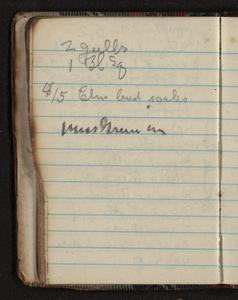 2 gulls
1 Bl Sq
4/5 Elm bud scales